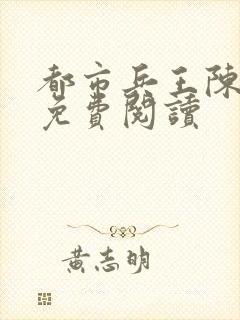 都市兵王陳
免費閱讀
黃志明